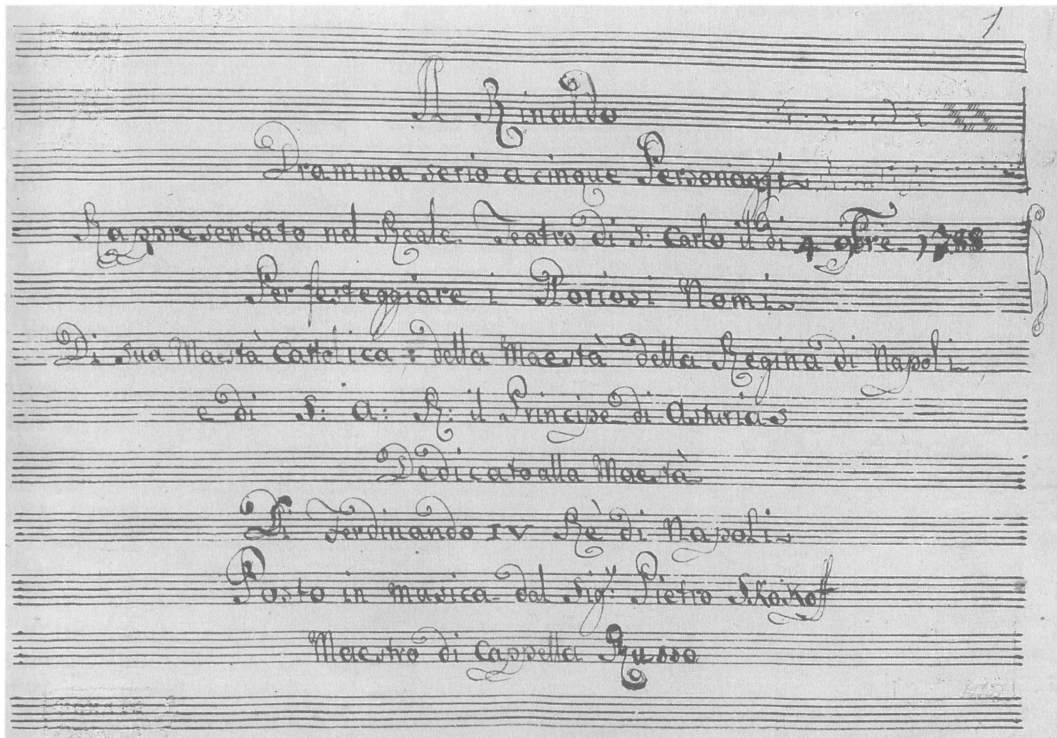 1.
Il Rinaldo
Dramma serio a cinque Personaggi
Rappresentato nel Reale Teatro di S: Carlo il di 4 9bre 1788
Per festeggiare i Gloriosi Nomi
Di Sua Maestà Cattolica: della Maestà della Regina di Napoli
e di S: A: R: il Principe di Asturias
Dedicato alla Maestà
Di Ferdinando IV Rè di Napoli
Posto in musica dal Sigr: Pietro Skokoff
Maestro di Cappella Russo